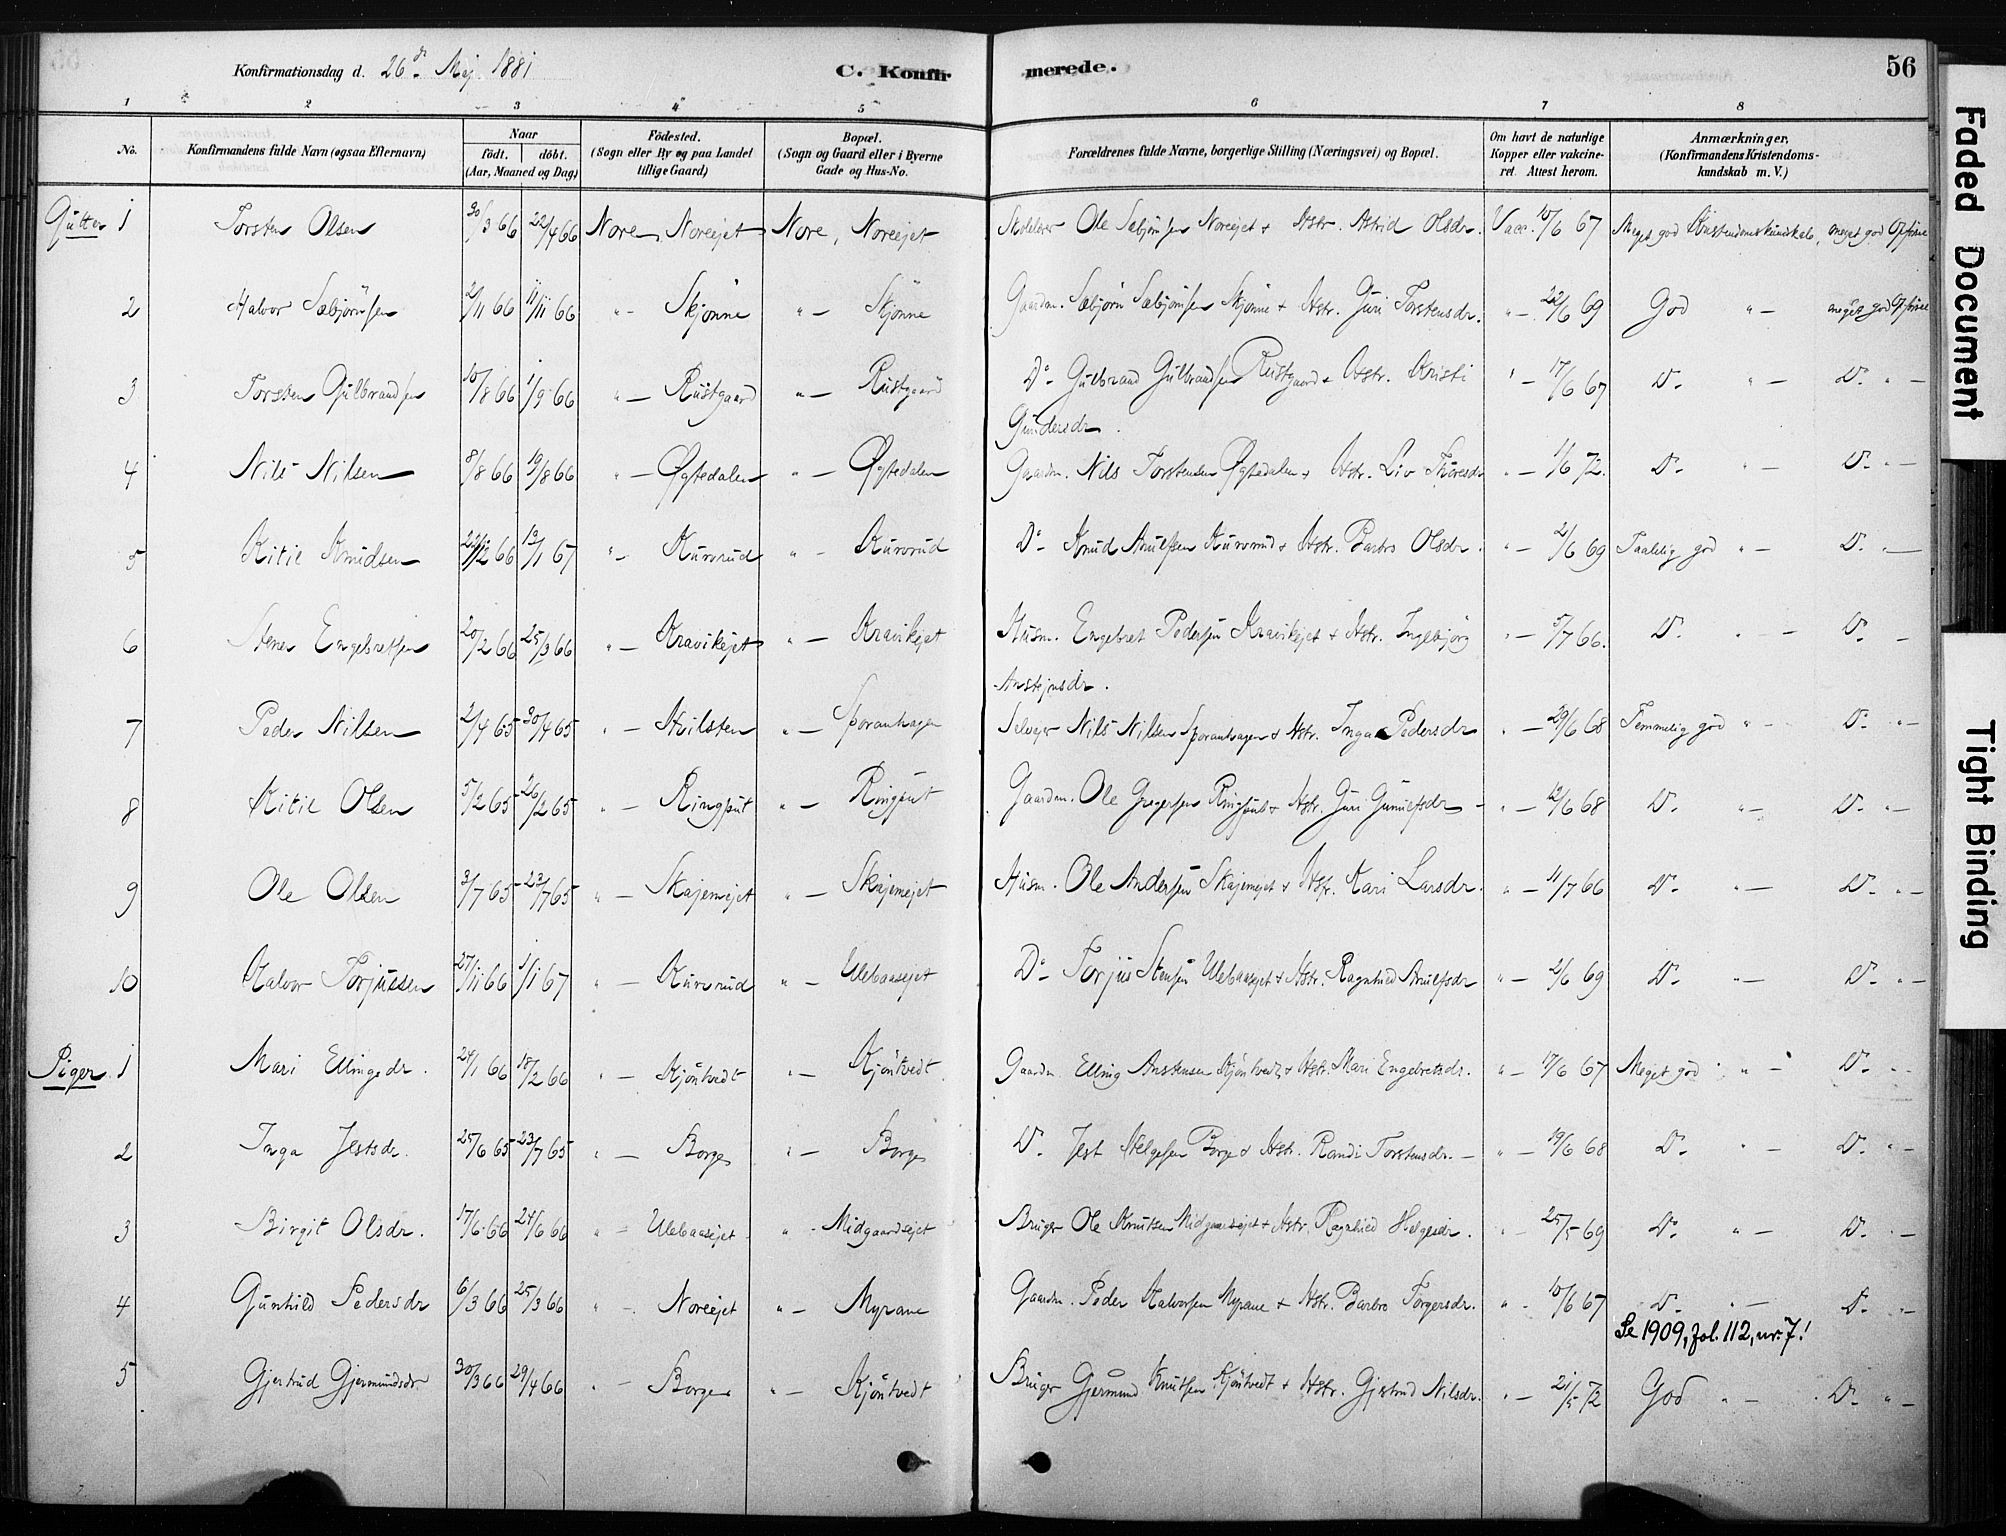 Konfirmationsdag d. 26de Maj 1881
C. Konfirmerede.
56
1 2 3 4 5 6 7 8
No.
Konfirmandens fulde Navn (ogsaa Efternavn)
Naar
födt. döbt.
(Aar, Maaned og Dag)
Födested.
(Sogn eller By og paa Landet
tillige Gaard)
Bopæl.
(Sogn og Gaard eller i Byerne
Gade og Hus-No.
Forældrenes fulde Navne, borgerlige Stilling (Næringsvei) og Bopæl.
Om havt de naturlige
Kopper eller vakcine-
ret. Attest herom.
Anmærkninger,
(Konfirmandens Kristendoms-
kundskab m. V.)
Gutter 1 Torsten Olsen 30/3 66 22/4 66 Nore, Noreejet Nore, Noreejet Ole Sæbjørnsen Noreejet & Hstr. Astrid Olsdr. Vacc. 10/6 67 Meget god Kristendomskundskab, meget god Opførsel
2 Halvor Sæbjørnsen 2/11 66 11/11 66 " — Skjønne " — Skjønne Gaardm. Sæbjørn Sæbjørnsen Skjønne & Hstr. Guri Torstensdr. " — 22/6 69 God " — meget god Opførsel
3 Torsten Gulbrandsen 10/8 66 1/9 66 " — Rustgaard " — Rustgaard Do Gulbrand Gulbrandsen Rustgaard & Hstr. Kristi " — 17/6 67 Do " — Do " —
Gundersdr.
4 Nils Nilsen 8/8 66 19/8 66 " — Øygstedalen " — Øygstedalen Gaardm. Nils Torstensen Øygstedalen & Hstr. Liv Thoresdr " — 1/6 72. Do " — Do " —
5 Kitil Knudsen 22/12 66 13/1 67 " — Kurvrud " — Kurvrud Do Knud Knutsen Kurvrud & Hstr. Barbro Olsdr. " — 2/6 69 Taalelig god " — Do " —
6 Stener Engebretsen 20/2 66 25/3 66 " — Kravikejet " — Kravikejet Husm. Engebret Pedersen Kravikejet & Hstr. Ingebjørg " — 5/7 66. Do " — Do —
Anstejnsdr.
7 Peder Nilsen 2/4 65 30/4 65 " — Hvilsten " — Sporanhagen Selvejer Nils Nilsen Sporanhagen & Hstr. Inga Pedersdr " — 29/6 68 Temmelig god " — Do " —
8 Kitil Olsen 5/2 65 26/2 65 " — Ringput " — Ringput Gaardm. Ole Gregersen Ringput & Hstr. Guri Gunulfsdr — " — 12/6 68 Do " — Do " —
9 Ole Olsen 3/7 65 23/7 65 " — Skajemejet " — Skajemejet Husm. Ole Andersen Skajemejet & Hstr. Kari Larsdr. " — 11/7 66 Do " — Do " —
10 Halvor Torjussen 27/11 66 1/1 67 " — Kurvrud " — Ulebaasejet Do Torjus Stensen Ulebaasejet & Hstr. Ragnhild Arnulfsdr " — 2/6 69 Do " — Do " —
Piger. 1 Mari Ellingsdr. 24/1 66 18/2 66 " — Kjöntvedt " — Kjöntvedt Gaardm Elling Anstensen Kjöntvedt & Hstr. Mari Engebretsdr. " — 17/6 67 Meget god " — Do " —
2 Inga Jestsdr. 25/6 65 23/7 65 " — Borge " — Borge Do Jest Helgesen Borge & Hstr. Randi Torstensdr. — " — 19/6 68 Do " — Do " —
3 Birgit Olsdr. 17/6 66 24/6 66 " — Ulebaasejet " — Midgaardsejet Bruger Ole Knutsen Midgaardsejet & Hstr. Ragnhild Helgesdr. " — 25/5 69 Do " — Do " —
4 Gunhild Pedersdr 6/3 66 25/3 66 " — Noreejet " — Myrane Gaardm. Peder Halvorsen Myrane & Hstr. Barbro Torgersdr. " — 10/6 67 Do " — Do " —
Se 1909, fol. 112, nr. 7!
5 Gjertrud Gjermundsdr 30/3 66 29/4 66 " — Borge " — Kjöntvedt Bruger Gjermund Knutsen Kjöntvedt & Hstr. Gjertrud Nilsdr. " — 21/5 72 God " — Do " —
Faded Document
Tight Binding